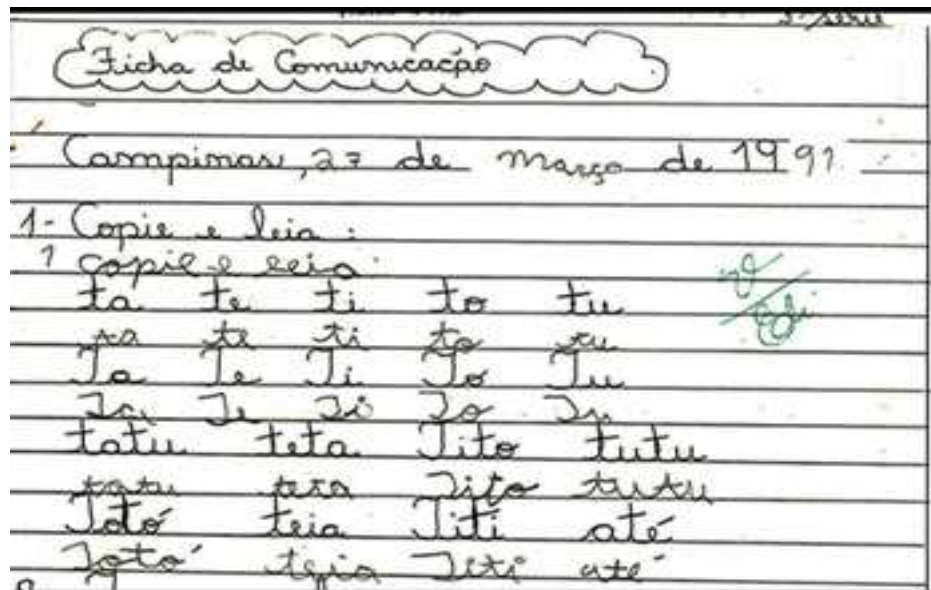 1ª série
Ficha de Comunicação
Campinas, 27 de março de 1991.
1- Copie e leia :
1 copie e leia.
ta te ti to tu
ta te ti to tu
Ta Te Ti To Tu
Ta Te Ti To Tu
tatu teta Tito tutu
tatu teta Tito tutu
Totó teia Titi até
Totó teia Titi até